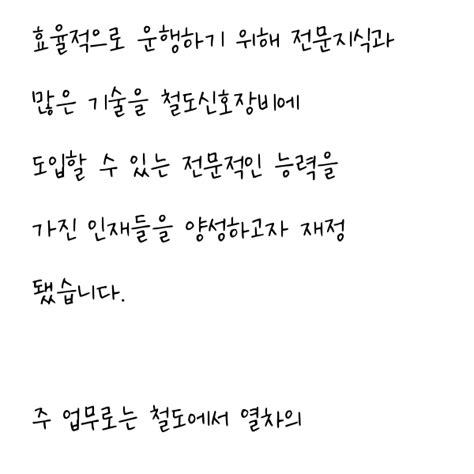 효율적으로 운행하기 위해 전문지식과
많은 기술을 철도신호장비에
도입할 수 있는 전문적인 능력을
가진 인재들을 양성하고자 재정
됐습니다.
주 업무로는 철도에서 열차의